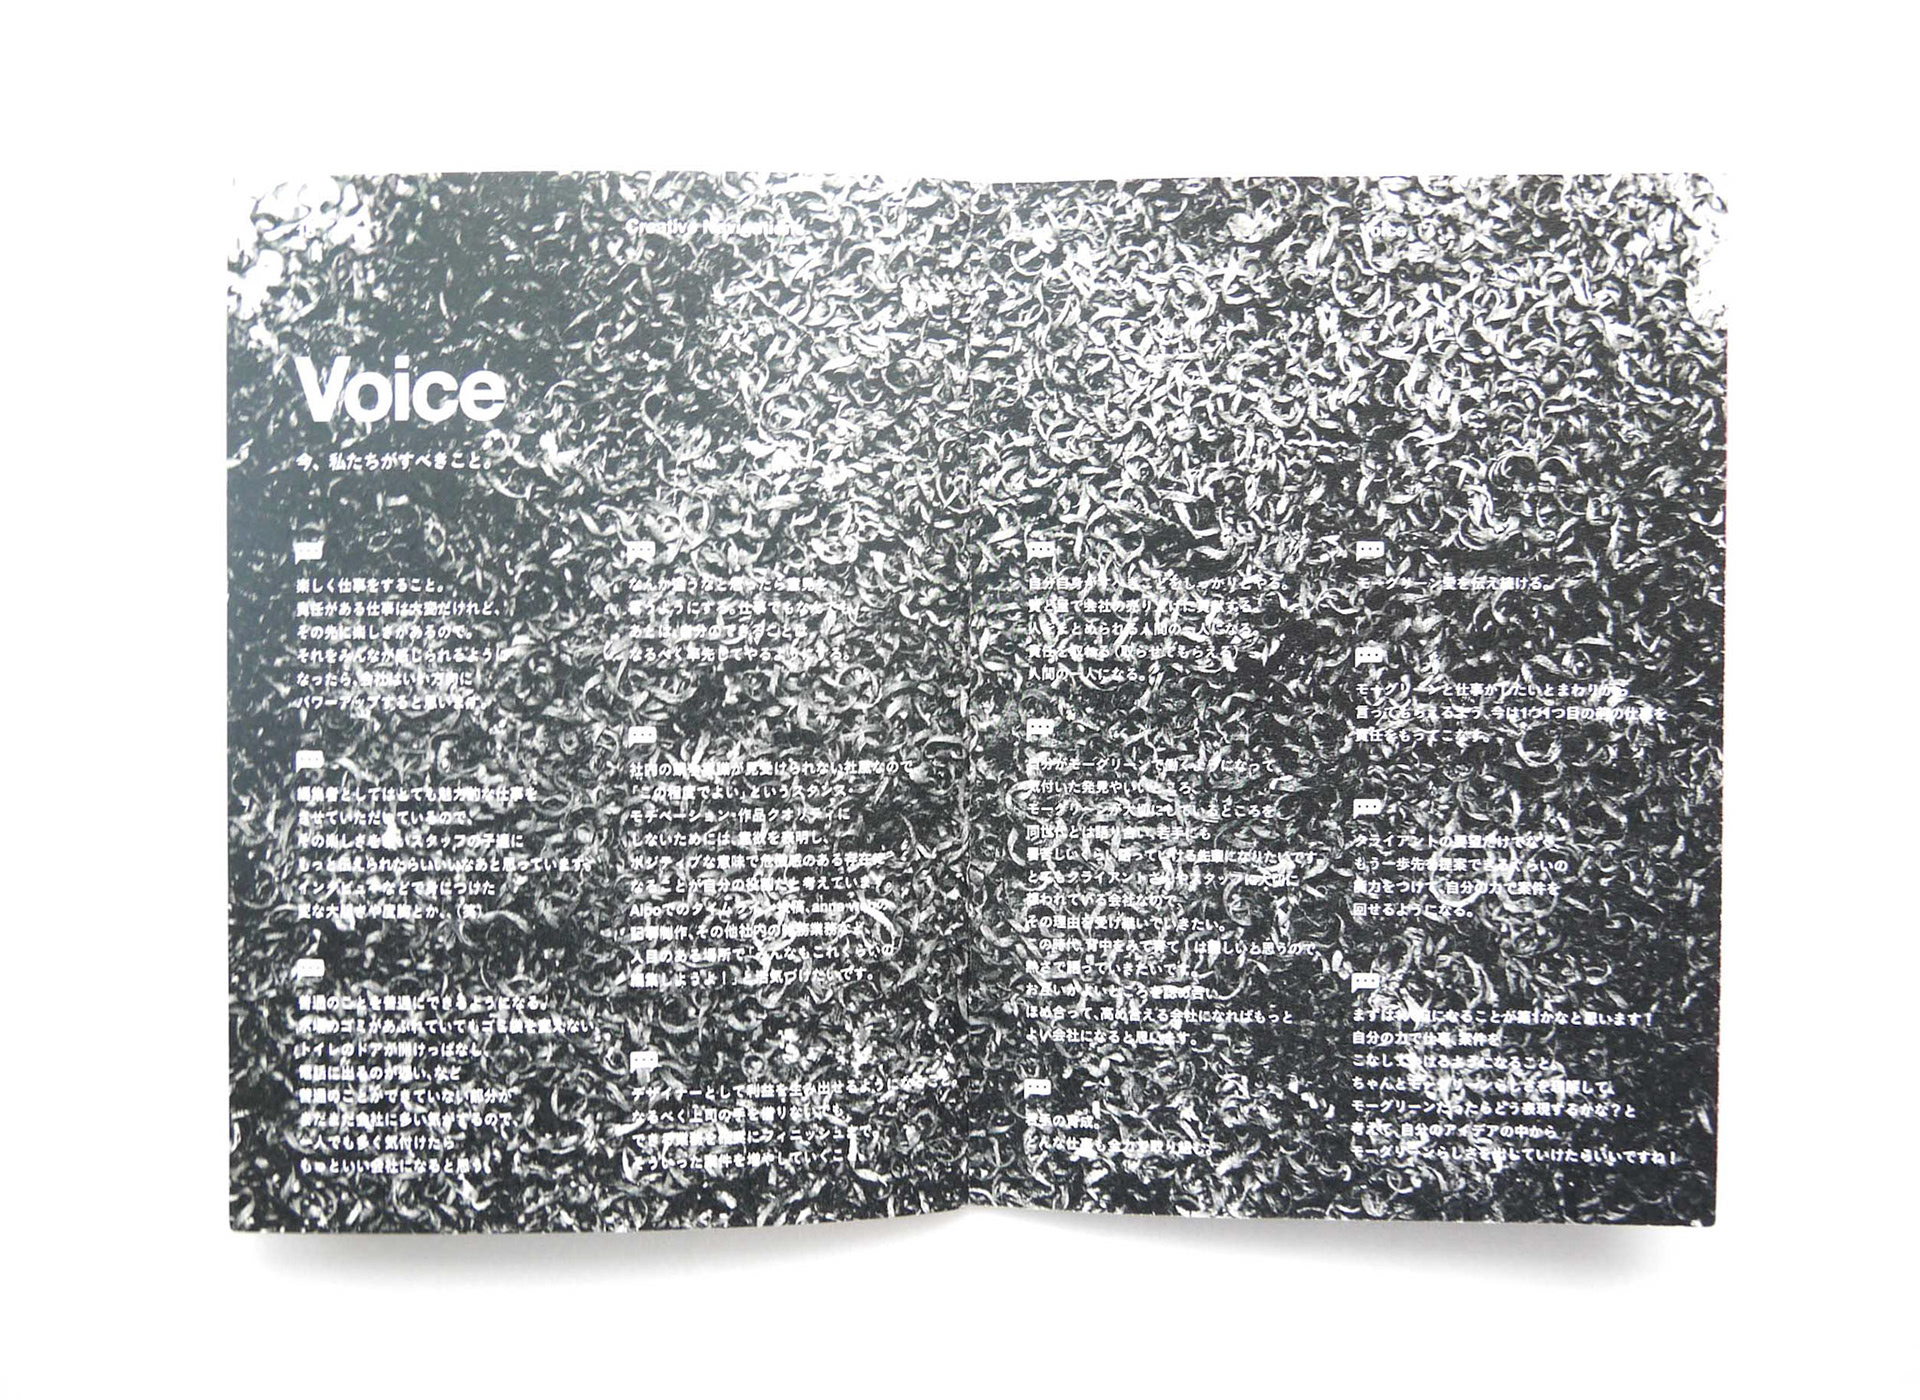 Creative Navigation
Voice
Voice
今、私たちがすべきこと。
楽しく仕事をすること。
責任がある仕事は大変だけれど、
その先に楽しさがあるので。
それをみんなが感じられるように
なったら、会社はいい方向に
パワーアップすると思います。
編集者としてはとても魅力的な仕事を
させていただいているので、
その楽しさを スタッフの子達に
もっと伝えられたらいいなあと思っています。
インタビューなどで身につけた
度胸とか。(笑)
普通のことを普通にできるようになる。
ゴミがあふれていてもゴミ袋を変えない、
トイレのドアが開けっぱなし、
電話に出るのが遅い、など
普通のことができていない部分が
まだまだ会社に多い気がするので、
一人でも多く気付けたら
もっといい会社になると思う。
なんか違うなと思ったら意見を
言うようにする。仕事でもなんでも。
あとは、自分のできることは
なるべく率先してやるようにする。
社内の 見受けられない社風なので
「この程度でよい」というスタンス・
モチベーション・作品クオリティに
しないためには、意欲を表明し、
ポジティブな意味で危機感のある存在に
なることが自分の役割だと考えています。
記事制作、その他社内の 業務など
人目のある場所で「みんなもこれくらいの
編集しようよ！」と活気づけたいです。
デザイナーとして利益を生み出せるように
なるべく上司の手を借りないでも、
フィニッシュまで。
そういった案件を増やしていくこと。
自分自身がすべきことをしっかりとやる。
質と量で会社の売り上げに貢献する。
人をまとめられる人間の一人になる。
責任を取れる（取らせてもらえる）
人間の一人になる。
自分がモーグリーンで働くようになって、
気付いた発見やいいところ、
モーグリーンが大切にしているところを、
同世代とは語り合い、若手にも
暑苦しいくらい語っていける先輩になりたいです。
とてもクライアントさんやスタッフに大切に
思われている会社なので、
その理由を受け継いでいきたい。
この時代、背中をみて育て！は難しいと思うので
熱さで語っていきたいです。
お互いがよいところを認め合い、
ほめ合って、高め合える会社になればもっと
よい会社になると思います。
若手の育成。
どんな仕事も全力で取り組む。
モーグリーン愛を伝え続ける。
モーグリーンと仕事がしたいとまわりから
言ってもらえるよう、今は1つ1つ目の前の仕事を
責任をもってこなす。
クライアントの要望だけでなく、
もう一歩先を提案できるくらいの
能力をつけて、自分の力で案件を
回せるようになる。
まずは になることが第1かなと思います！
自分の力で仕事、案件を
こなしていけるようになること。
ちゃんとモーグリーンらしさを理解して、
モーグリーンだったらどう表現するかな？と
考えて、自分のアイデアの中から
モーグリーンらしさを出していけたらいいですね！